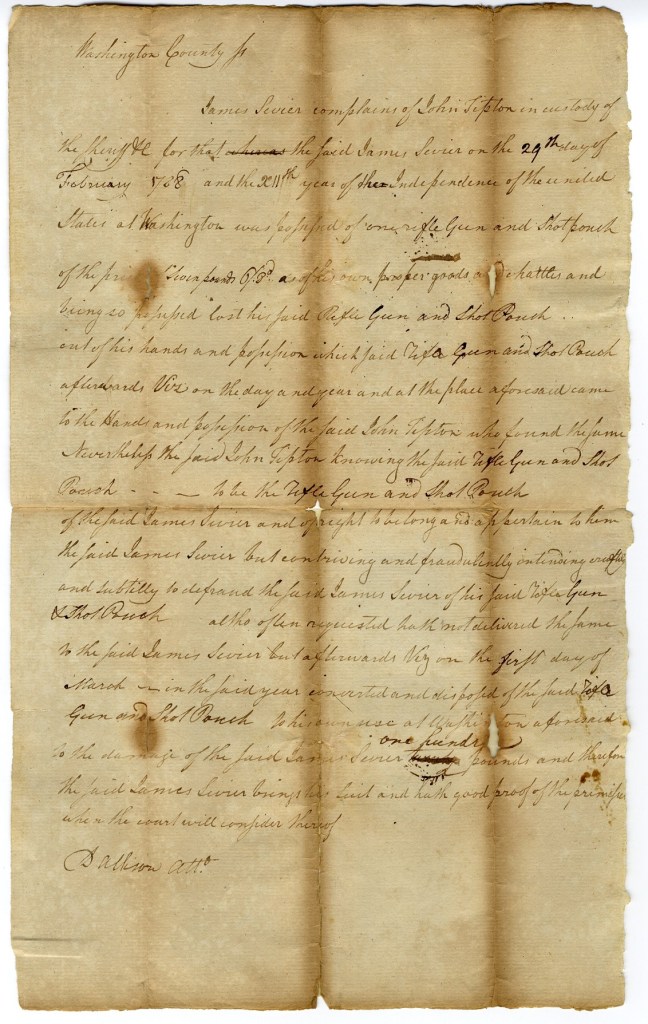 Washington County ss
James Sevier complains of John Tipton in custody of
the sheriff &c for that whereas the said James Sevier on the 29th day of
February 1788 and the XIIth year of the Independence of the united
States at Washington was possessed of one rifle Gun and Shot pouch
of the price pounds as of his own proper goods and chattles and
being so possessed lost his said Rifle Gun and Shot Pouch
out of his hands and possession which said Rifle Gun and Shot Pouch
afterwards Viz on the day and year and at the place aforesaid came
to the Hands and possession of the said John Tipton who found the same
Nevertheless the said John Tipton Knowing the said Rifle Gun and Shot
Pouch - - - to be the Rifle Gun and Shot Pouch
of the said James Sevier and of right to belong and appertain to him
the said James Sevier but contriving and fraudulently intending craftily
and subtilly to defraud the said James Sevier of his said Rifle Gun
& Shot Pouch altho often requested hath not delivered the same
to the said James Sevier but afterwards Viz on the first day of
March - in the said year converted and disposed of the said Rifle
Gun and Shot Pouch to his own use at Washington aforesaid
one hundred
to the damage of the said James Sevier pounds and therefore
the said James Sevier brings his Suit and hath good proof of the premises
when the court will consider thereof
D Allison Atto